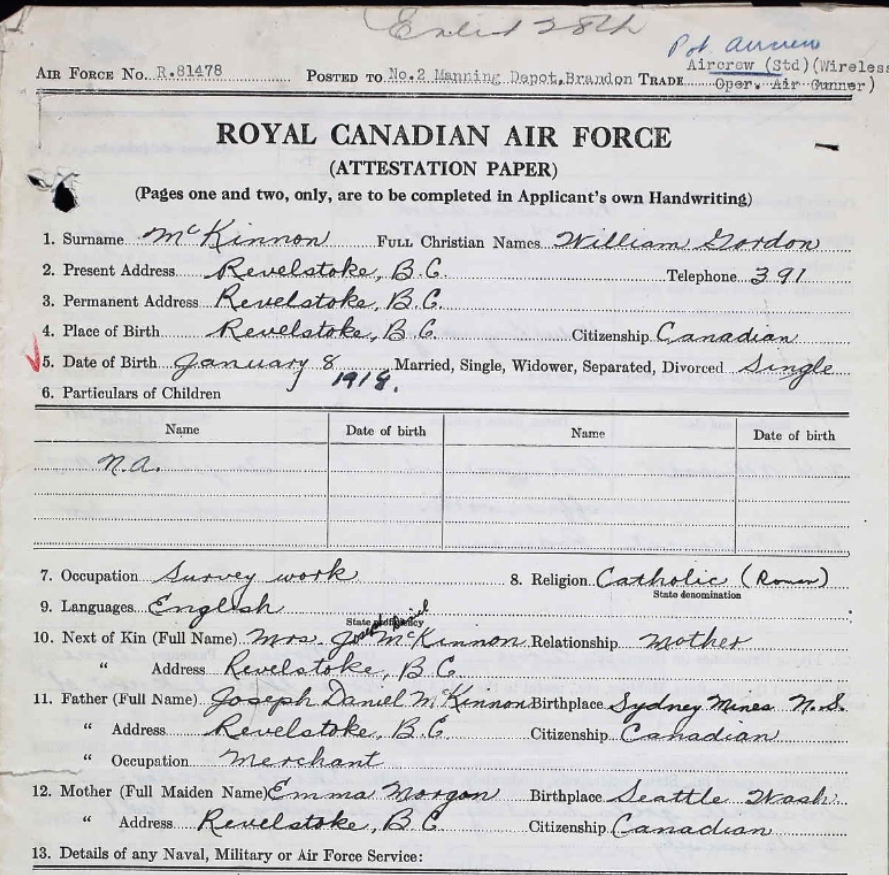 Enlist 28th
Pot. aircrew
AIR FORCE NO. R.81478 POSTED TO No.2 Manning Depot, Brandon TRADE Aircrew (Std) (Wireless
Oper. Air Gunner)
ROYAL CANADIAN AIR FORCE
(ATTESTATION PAPER)
(Pages one and two, only, are to be completed in Applicant's own Handwriting)
1. Surname McKinnon FULL Christian Names William Gordon
2. Present Address Revelstoke, B.C. Telephone 391
3. Permanent Address Revelstoke, B.C.
4. Place of Birth Revelstoke, B.C. Citizenship Canadian
5. Date of Birth January 8 Married, Single, Widower, Separated, Divorced Single
1918.
6. Particulars of Children
Name Date of birth Name Date of birth
N.A.
7. Occupation Survey work 8. Religion Catholic (Roman)
State denomination
9. Languages English
State proficiency
10. Next of Kin (Full Name) Mrs. Joseph Daniel McKinnon Relationship Mother
" Address Revelstoke, B.C.
11. Father (Full Name) Joseph Daniel McKinnon Birthplace Sydney Mines N.S.
" Address Revelstoke, B.C. Citizenship Canadian
" Occupation Merchant
12. Mother (Full Maiden Name) Emma Morgan Birthplace Seattle Wash
" Address Revelstoke, B.C. Citizenship Canadian
13. Details of any Naval, Military or Air Force Service: